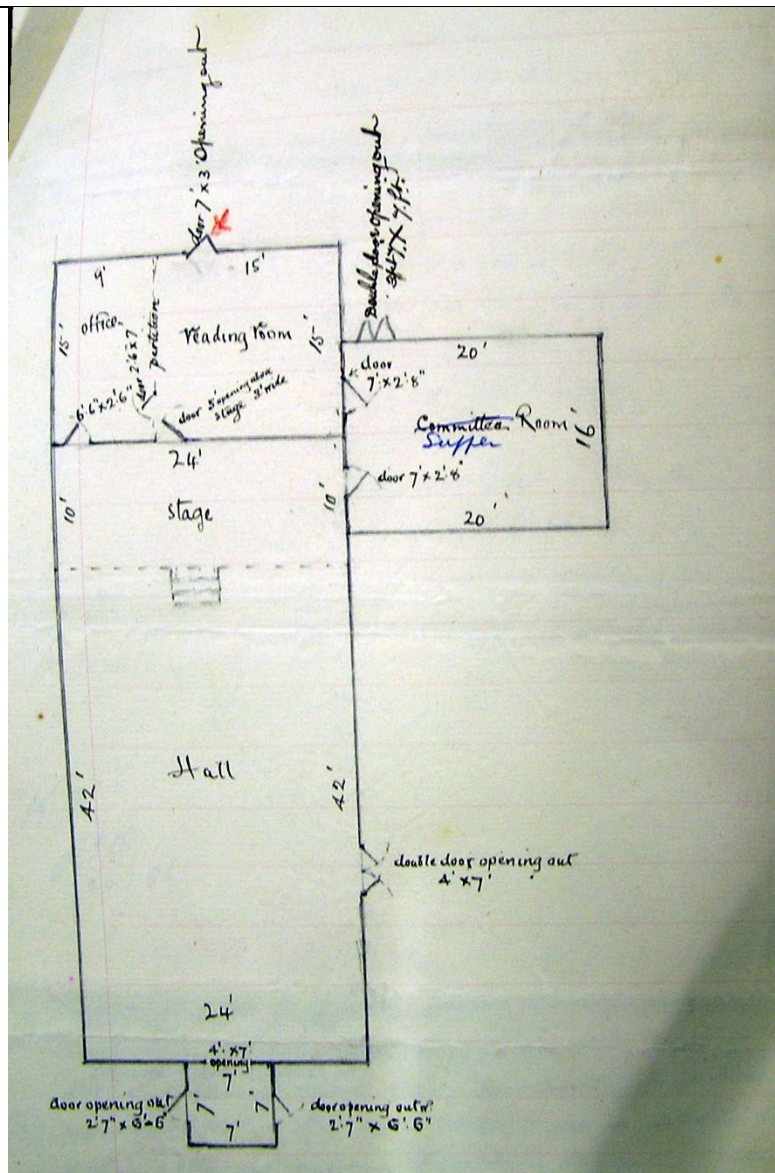 door 7' x 3' Opening out
Double doors opening out
9'
15'
office
15'
partition
door 2'6 x 7
Reading room
15'
6'·6" x 2'6"
door 5' opening above
stage 3' wide
door
7' x 2'8"
20'
Committee Room
Supper
16'
24'
door 7' x 2'·8"
10'
Stage
10'
20'
Hall
42'
42'
double door opening out
4' x 7'
24'
4' x 7'
opening
7'
door opening out
2'·7" x 6'·6"
7'
7'
door opening out
2'·7" x 6'·6"
7'